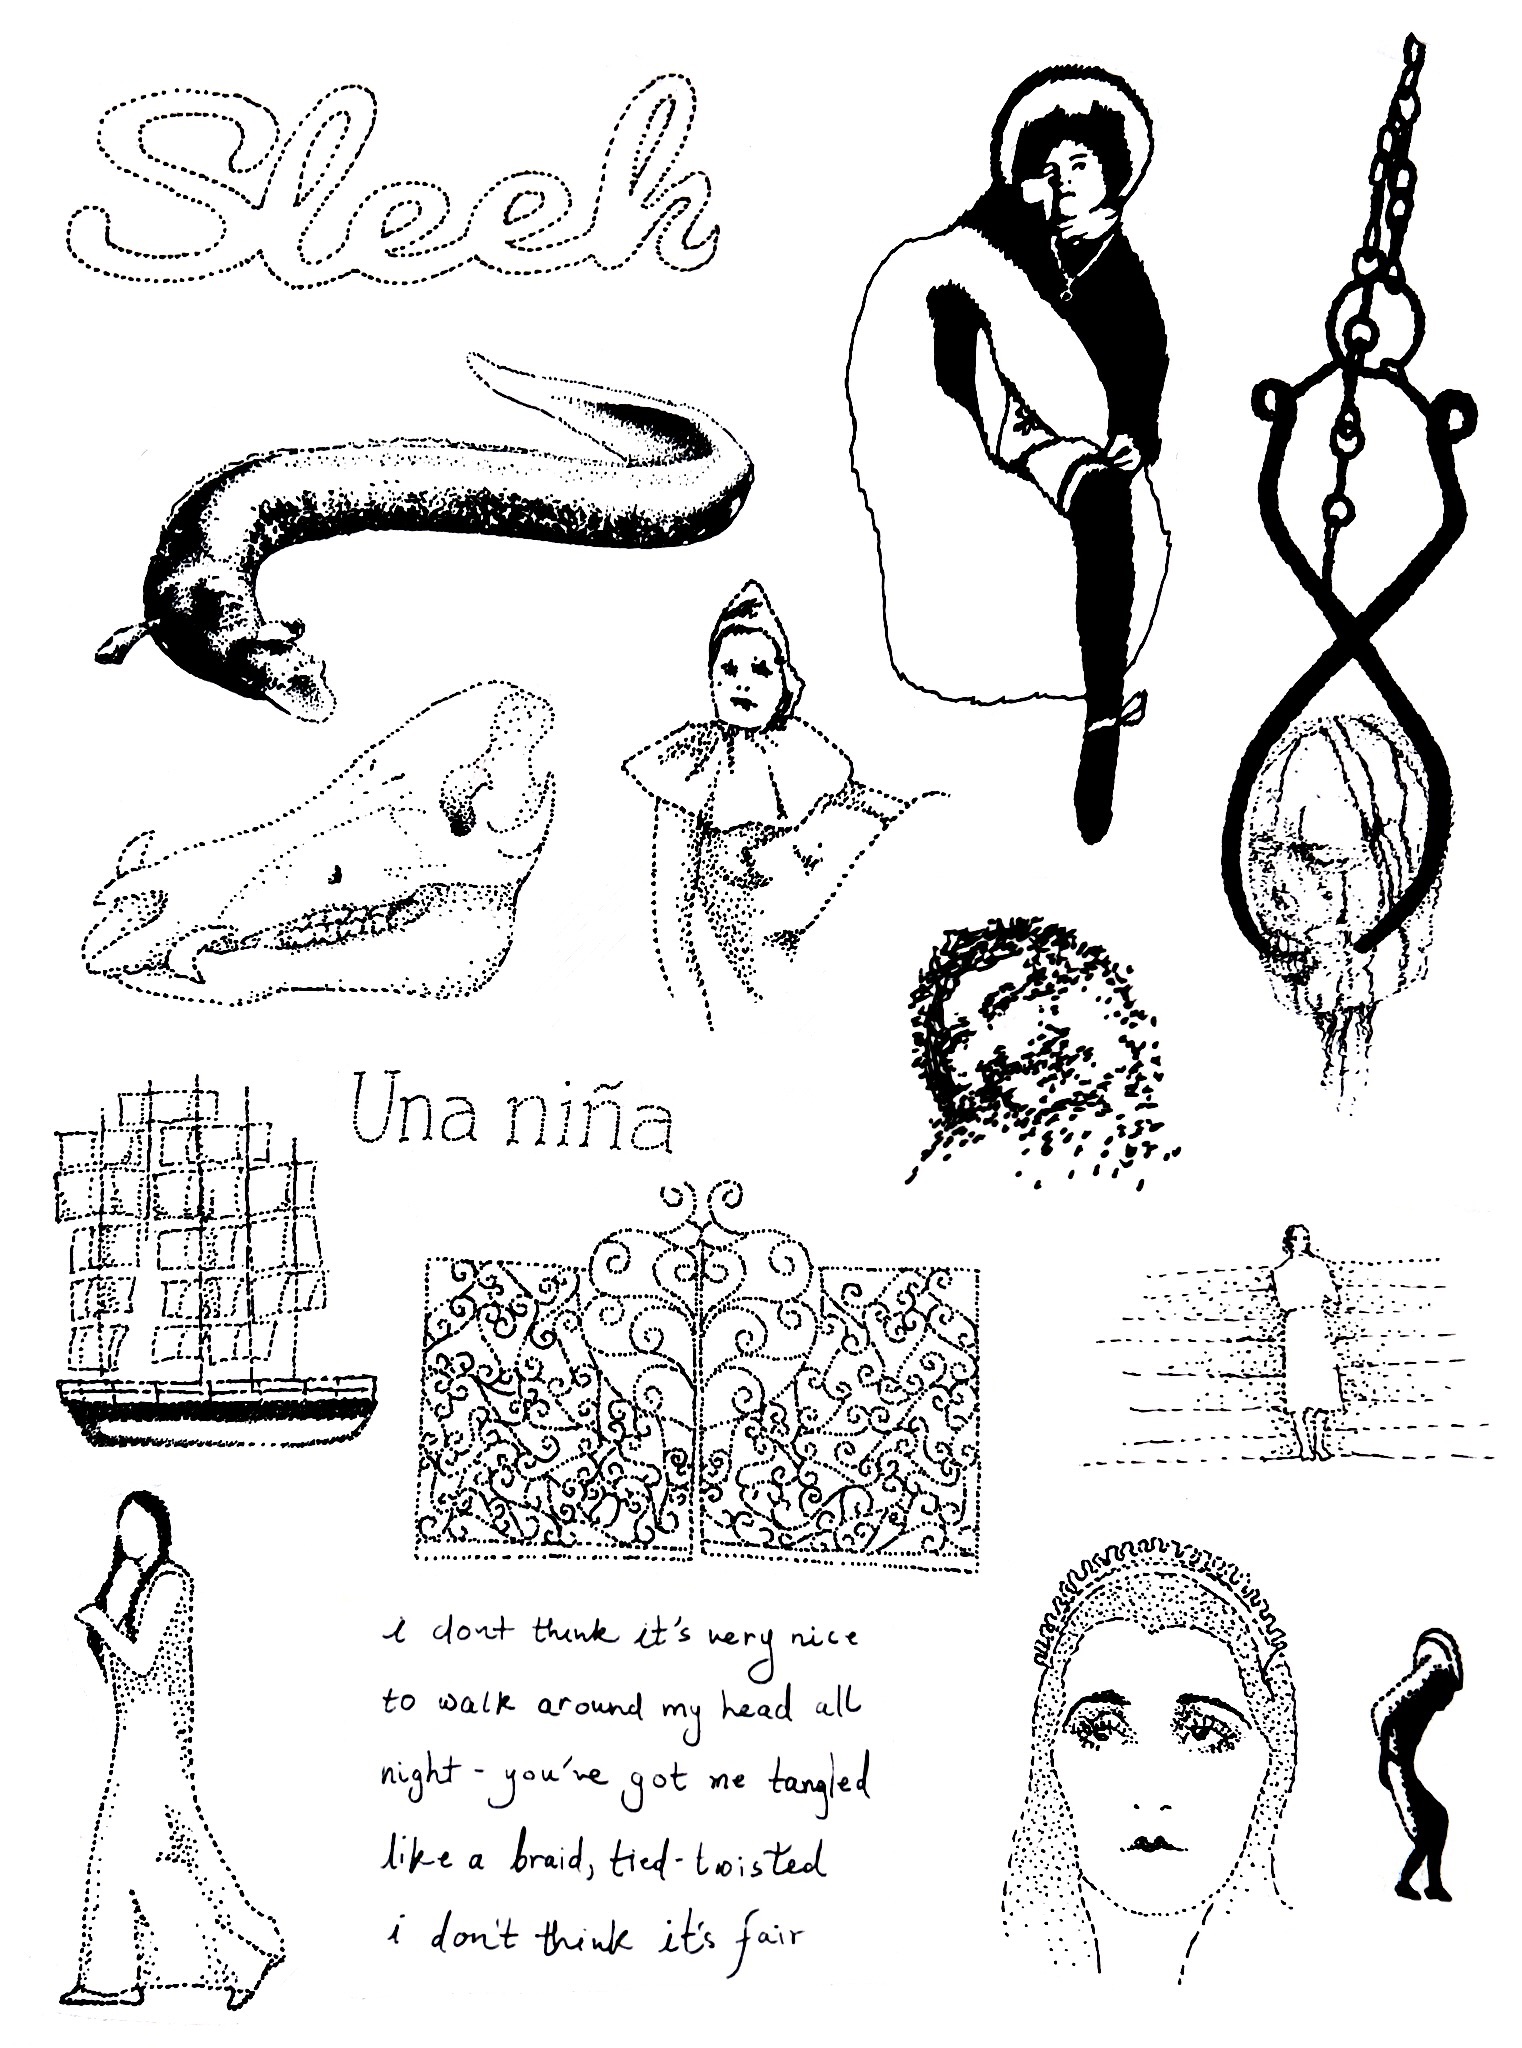 Sleek
Una niña
i dont think it's very nice
to walk around my head all
night - you've got me tangled
like a braid, tied-twisted
i don't think it's fair